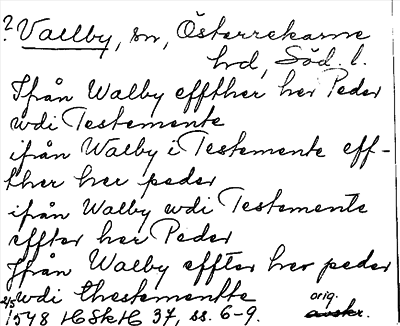 ? Vallby, sn, Österrekarne
hd, Söd. l.
Ifrån Walby effther her Peder
wdi Testemente
ifrån Walby i Testemente eff-
ther her peder
ifrån Walby wdi Testemente
effter her Peder
Ifrån Walby effter her peder
wdi thestementte
2/5 1548 HSkH 37, ss. 6-9. orig. avskr.